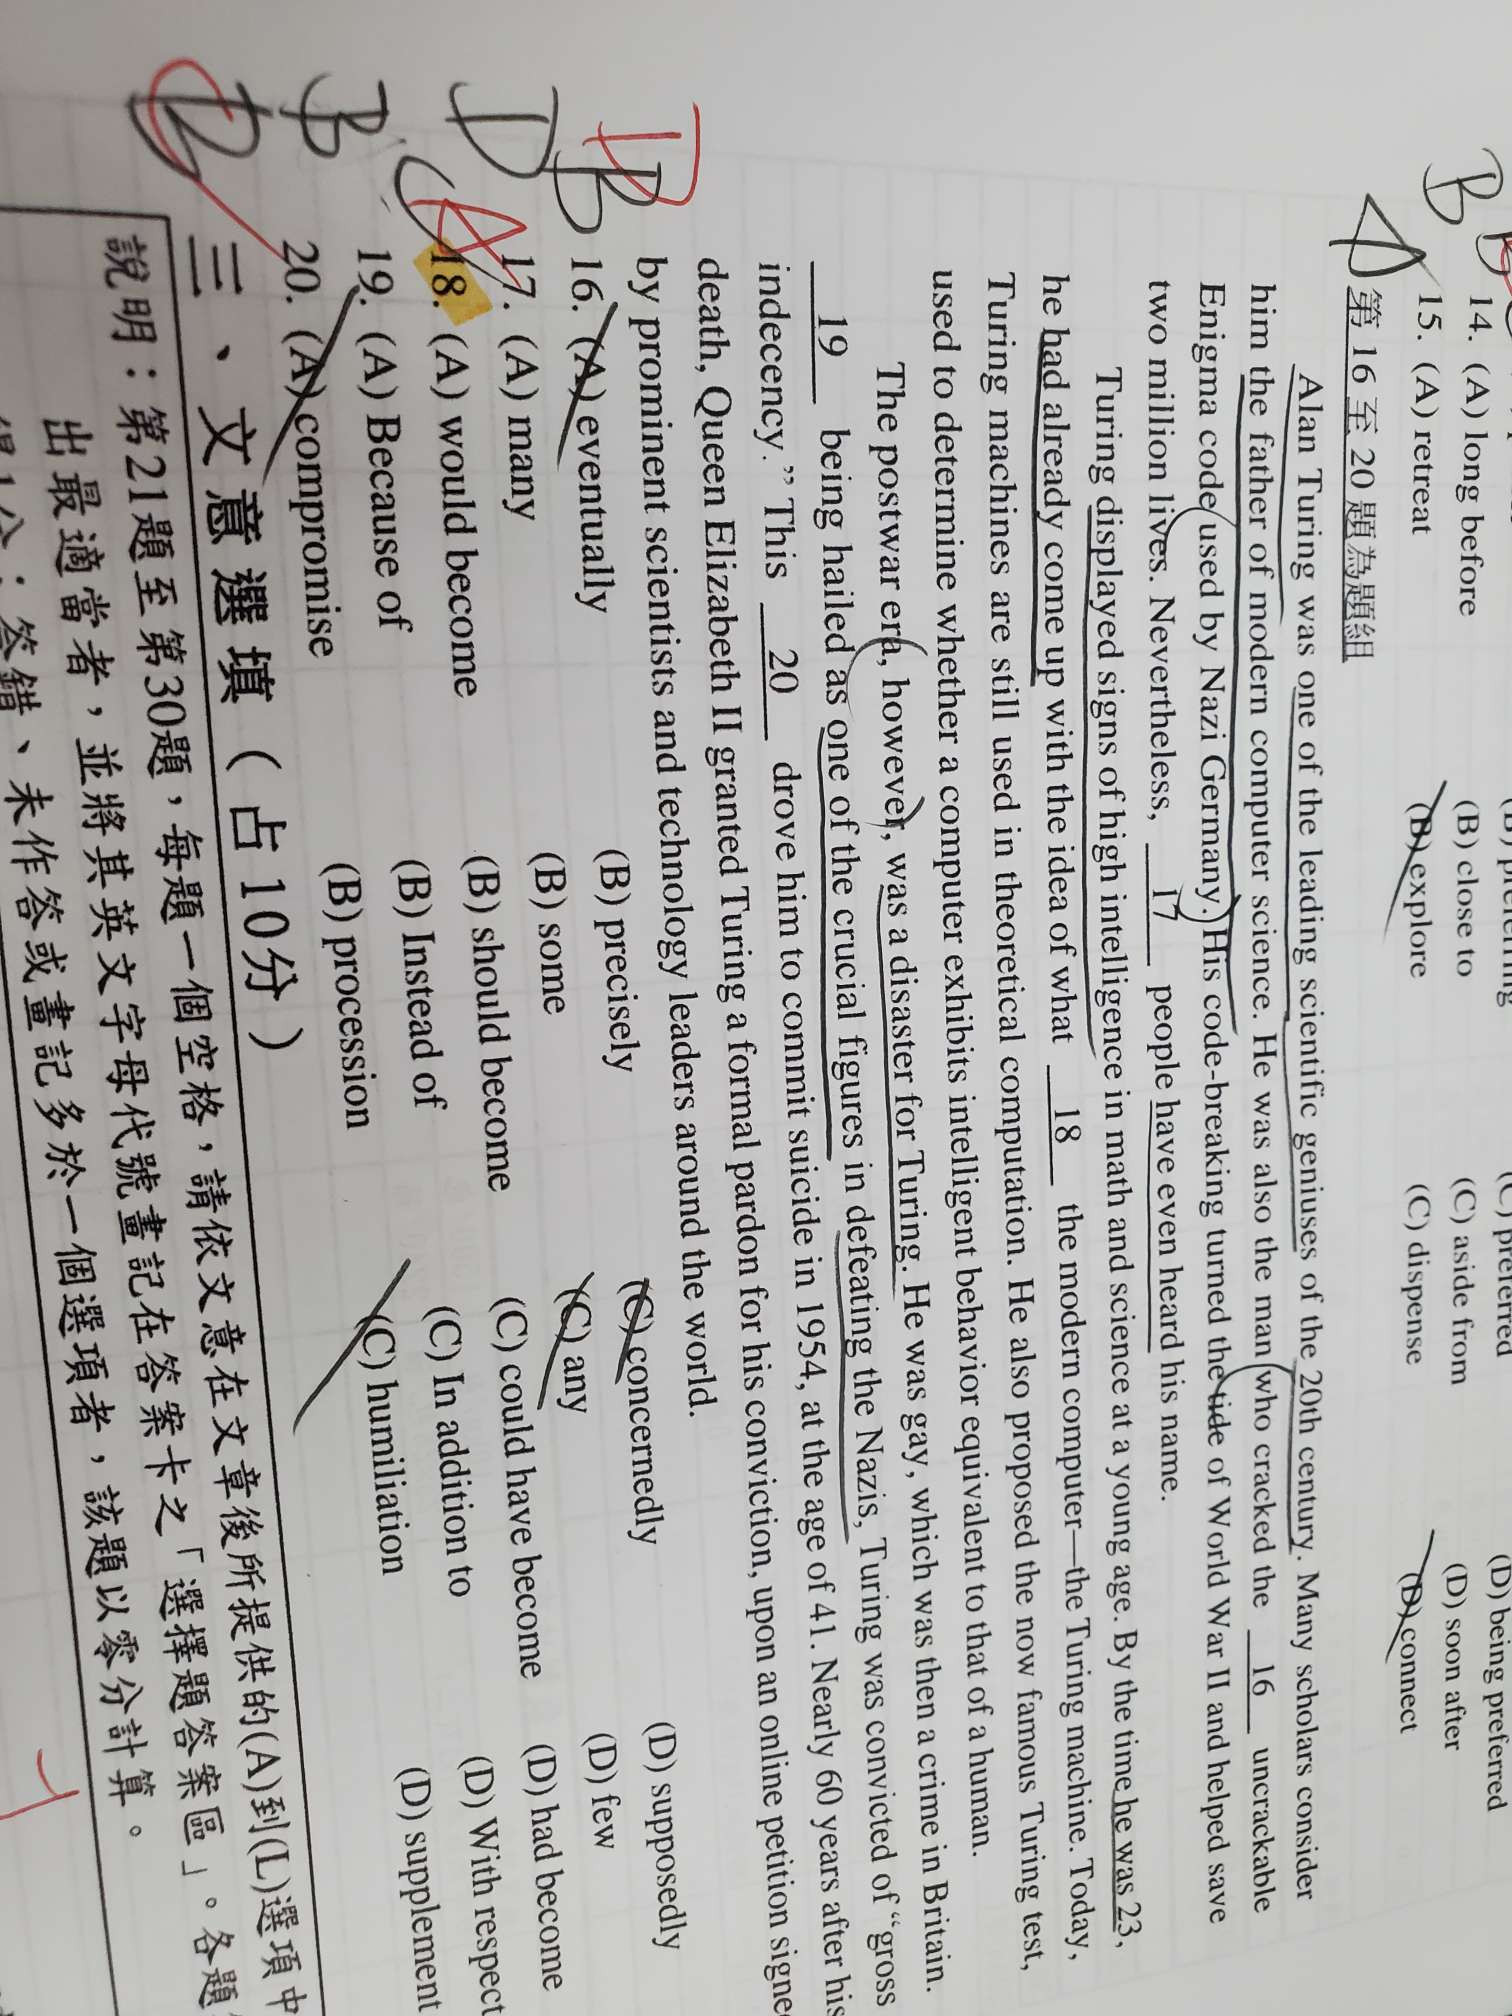 14. (A) long before (B) close to (C) aside from (D) soon after
(C) preferred (D) being preferred
B 15. (A) retreat (B) explore (C) dispense (D) connect
第 16 至 20 題為題組
Alan Turing was one of the leading scientific geniuses of the 20th century. Many scholars consider
him the father of modern computer science. He was also the man who cracked the 16 uncrackable
Enigma code used by Nazi Germany. His code-breaking turned the tide of World War II and helped save
two million lives. Nevertheless, 17 people have even heard his name.
Turing displayed signs of high intelligence in math and science at a young age. By the time he was 23,
he had already come up with the idea of what 18 the modern computer—the Turing machine. Today,
Turing machines are still used in theoretical computation. He also proposed the now famous Turing test,
used to determine whether a computer exhibits intelligent behavior equivalent to that of a human.
The postwar era, however, was a disaster for Turing. He was gay, which was then a crime in Britain.
19 being hailed as one of the crucial figures in defeating the Nazis, Turing was convicted of “gross
indecency.” This 20 drove him to commit suicide in 1954, at the age of 41. Nearly 60 years after his
death, Queen Elizabeth II granted Turing a formal pardon for his conviction, upon an online petition signed
by prominent scientists and technology leaders around the world.
D B 16. (A) eventually (B) precisely (C) concernedly (D) supposedly
D 17. (A) many (B) some (C) any (D) few
C A 18. (A) would become (B) should become (C) could have become (D) had become
B 19. (A) Because of (B) Instead of (C) In addition to (D) With respect
20. (A) compromise (B) procession (C) humiliation (D) supplement
三、文意選填（占10分）
說明：第21題至第30題，每題一個空格，請依文意在文章後所提供的(A)到(L)選項中
出最適當者，並將其英文字母代號畫記在答案卡之「選擇題答案區」。各題
得1分；答錯、未作答或畫記多於一個選項者，該題以零分計算。